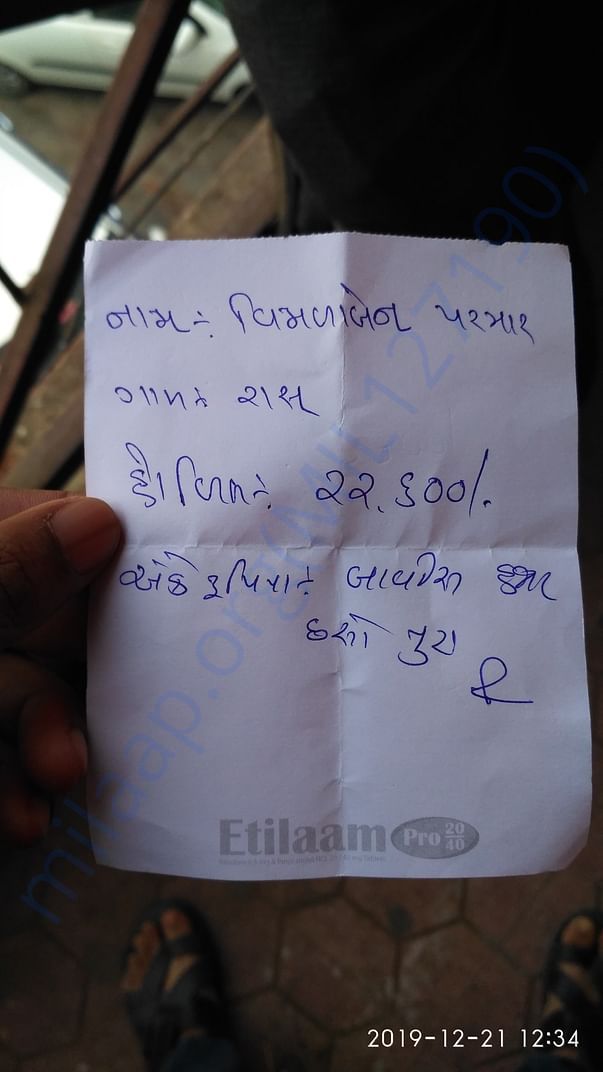 નામઃ વિમળાબેન પરમાર
ગામઃ રાસ
હો. બિલઃ ૨૨,૬૦૦/.
અંકે રૂપિયાઃ બાવીસ હજાર
છસો પુરા
Etilaam Pro 20 40
milaap.org(MIL127190)
2019-12-21 12:34